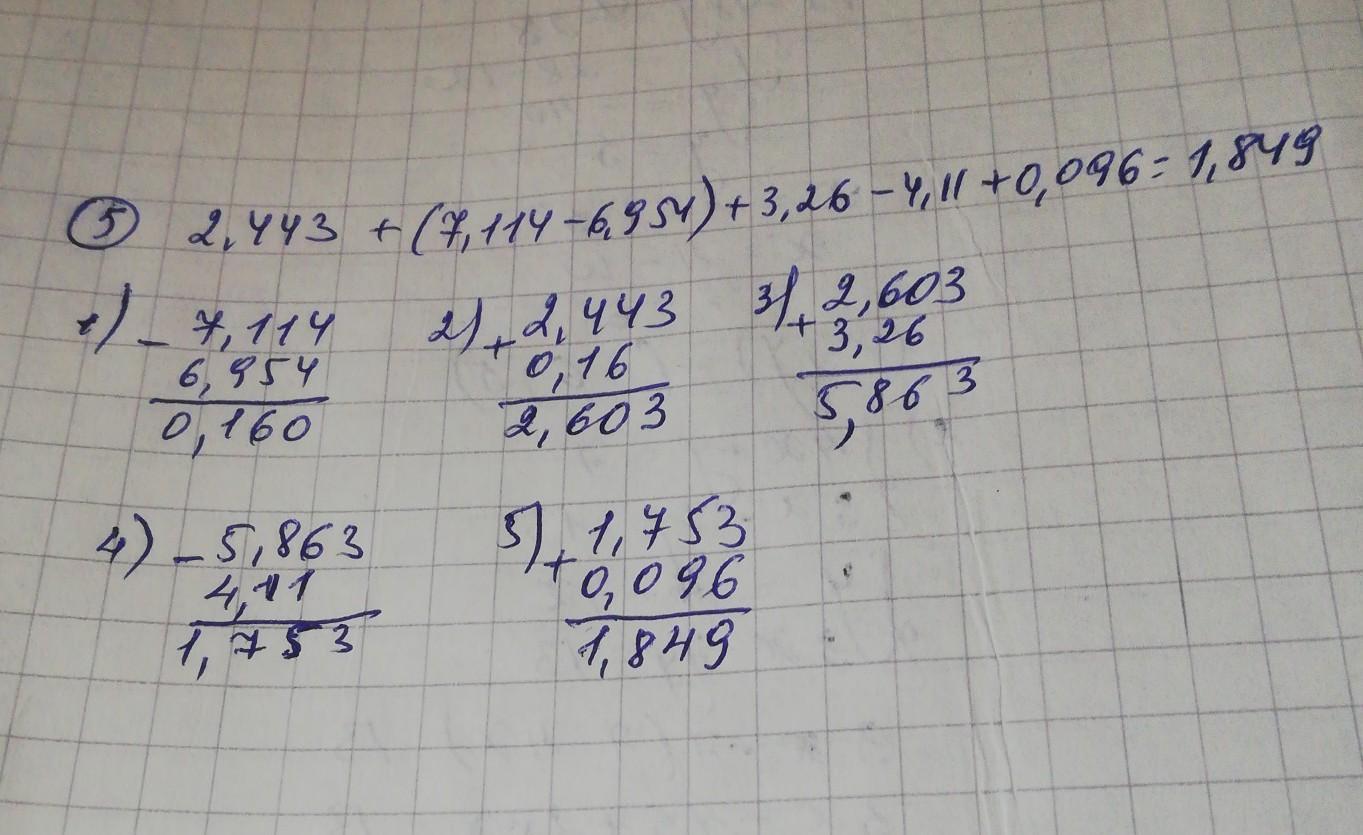 ⑤ 2,443 + (7,114 - 6,954) + 3,26 - 4,11 + 0,096 = 1,849
1) - 7,114
6,954
0,160
2) + 2,443
0,16
2,603
3) + 2,603
3,26
5,863
4) - 5,863
4,11
1,753
5) + 1,753
0,096
1,849